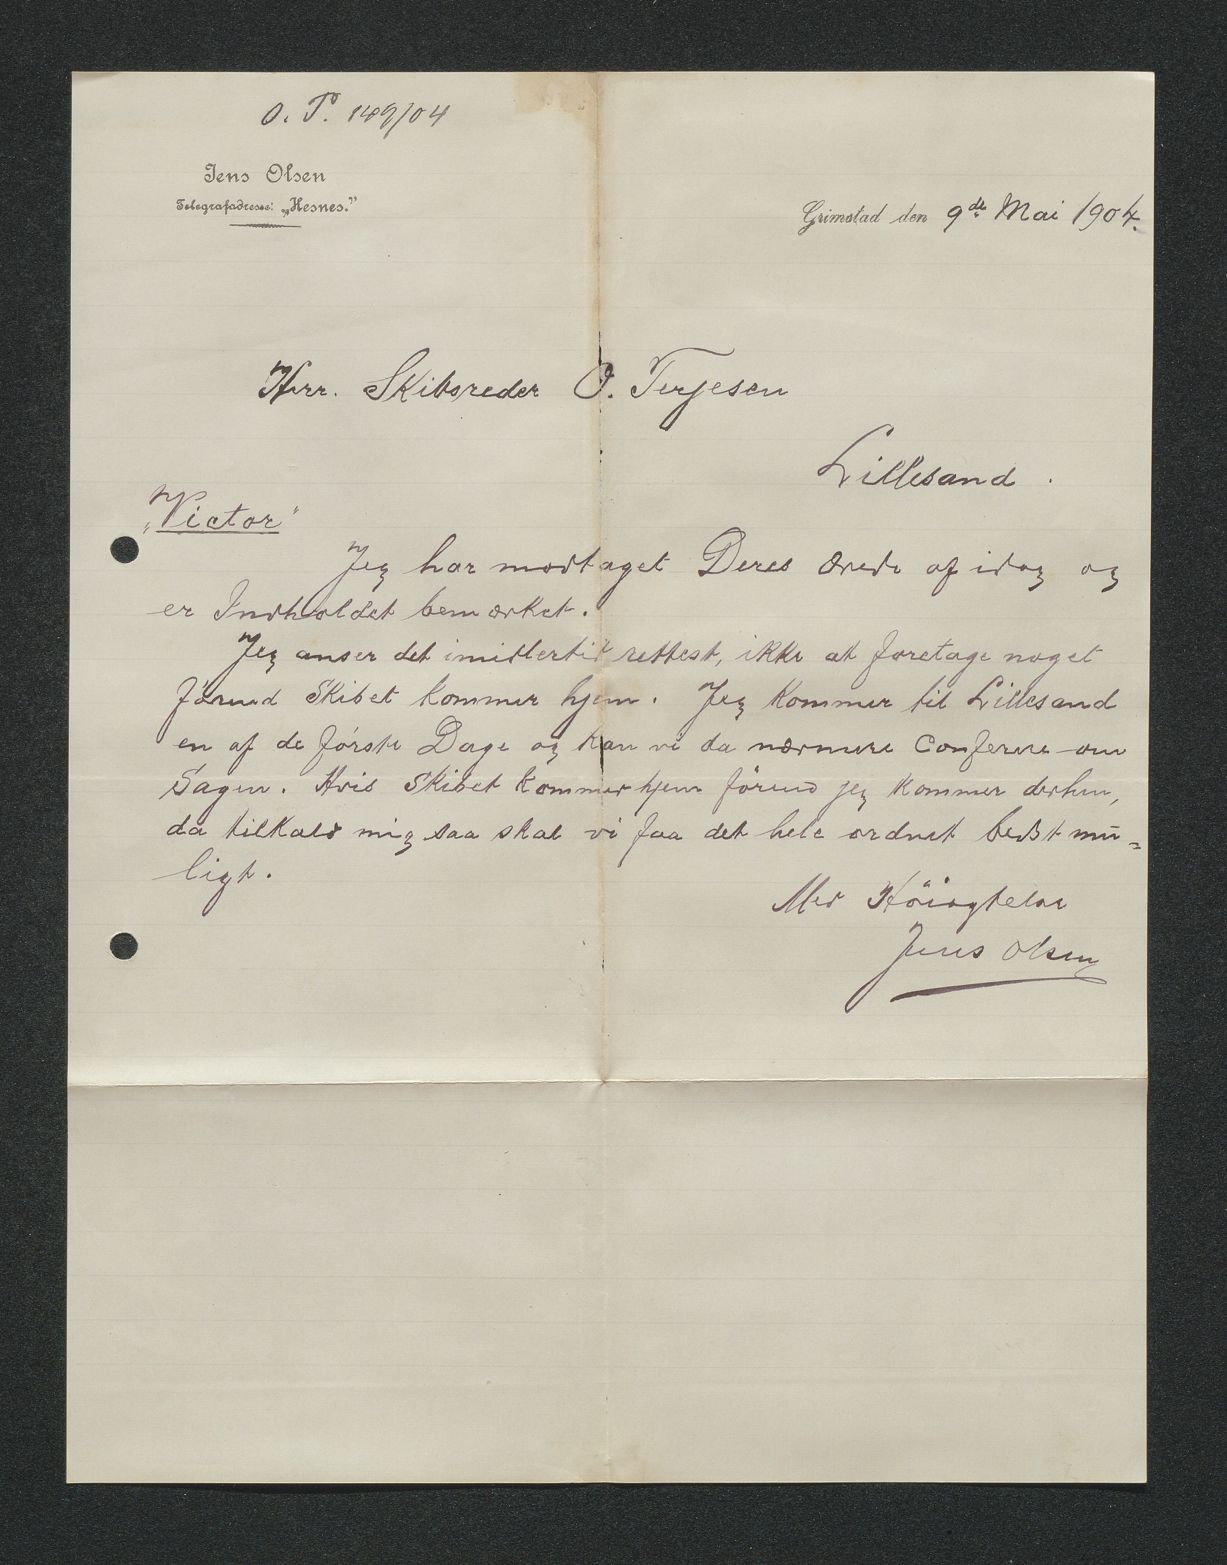 O. T. 149/04
Jens Olsen
Telegrafadresse: „Hesnes.”
Grimstad den 9de Mai 1904.
Herr. Skibsreder O. Terjesen
Lillesand.
„Victor”
Jeg har modtaget Deres ærede af idag og
er Indholdet bemærket.
Jeg anser det imidlertid rettest, ikke at foretage noget
førend Skibet kommer hjem. Jeg kommer til Lillesand
en af de første Dage og kan vi da nærmere Conferere om
Sagen. Hvis Skibet kommer hjem förend jeg kommer derhen,
da tilkald mig saa skal vi faa det hele ordnet bedst mu=
ligt.
Med Höiagtelse
Jens Olsen